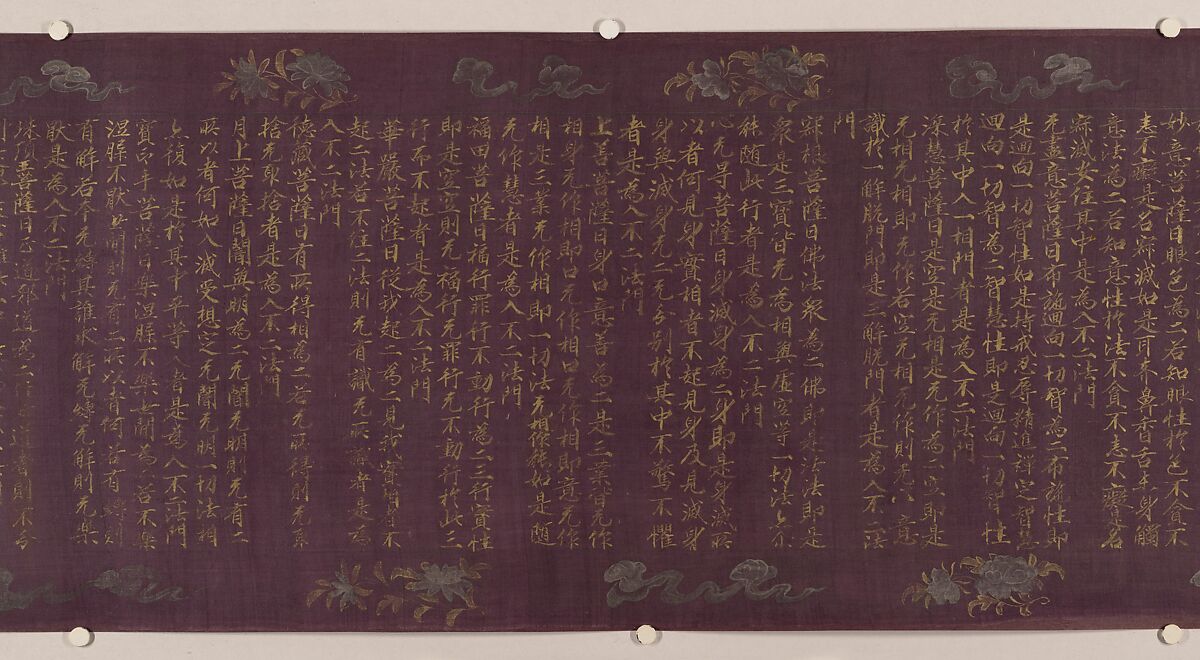 妙意菩薩曰眼色為二若知眼性於色不貪不
恚不癡是名寂滅如是耳聲鼻香舌味身觸
意法為二若知意性於法不貪不恚不癡是名
寂滅安住其中是為入不二法門
无盡意菩薩曰布施迴向一切智為二布施性即
是迴向一切智性如是持戒忍辱精進禪定智慧
迴向一切智為二智慧性即是迴向一切智性
於其中入一相門者是為入不二法門
深慧菩薩曰是空是无相是无作為二空即是
无相无相即无作若空无相无作則无心意
識於一解脫門即是三解脫門者是為入不二法
門
寂根菩薩曰佛法眾為二佛即是法法即是
眾是三寶皆无為相與虛空等一切法亦尒
能隨此行者是為入不二法門
心无㝵菩薩曰身滅身為二身即是身滅所
以者何見身實相者不起見身及見滅身
身與滅身无二无分別於其中不驚不懼
者是為入不二法門
上善菩薩曰身口意善為二是三業皆无作
相身无作相即口无作相口无作相即意无作
相是三業无作相即一切法无作相能如是隨
无作慧者是為入不二法門
福田菩薩曰福行罪行不動行為二三行實性
即是空空則无福行无罪行无不動行於此三
行而不起者是為入不二法門
華嚴菩薩曰從我起二為二見我實相者不
起二法若不住二法則无有識无所識者是為
入不二法門
德藏菩薩曰有所得相為二若无所得則无取
捨无取捨者是為入不二法門
月上菩薩曰闇與明為二无闇无明則无有二
所以者何如入滅受想定无闇无明一切法相
亦復如是於其中平等入者是為入不二法門
寶印手菩薩曰樂涅槃不樂世間為二若不樂
涅槃不厭世間則无有二所以者何若有縛則
有解若本无縛其誰求解无縛无解則无樂
厭是為入不二法門
珠頂王菩薩曰正道邪道為二住正道者則不分